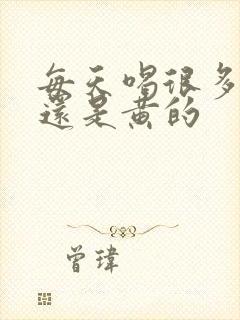 每天喝很多
還是黄的
曾瑋